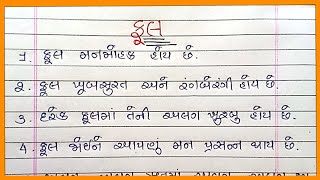 ફૂલ
૧. ફૂલ મનમોહક હોય છે.
૨. ફૂલ ખૂબસુરત અને રંગબેરંગી હોય છે.
૩. દરેક ફૂલમાં તેની અલગ ખુશ્બુ હોય છે.
૪. ફૂલ જોઇને આપણું મન પ્રસન્ન થાય છે.